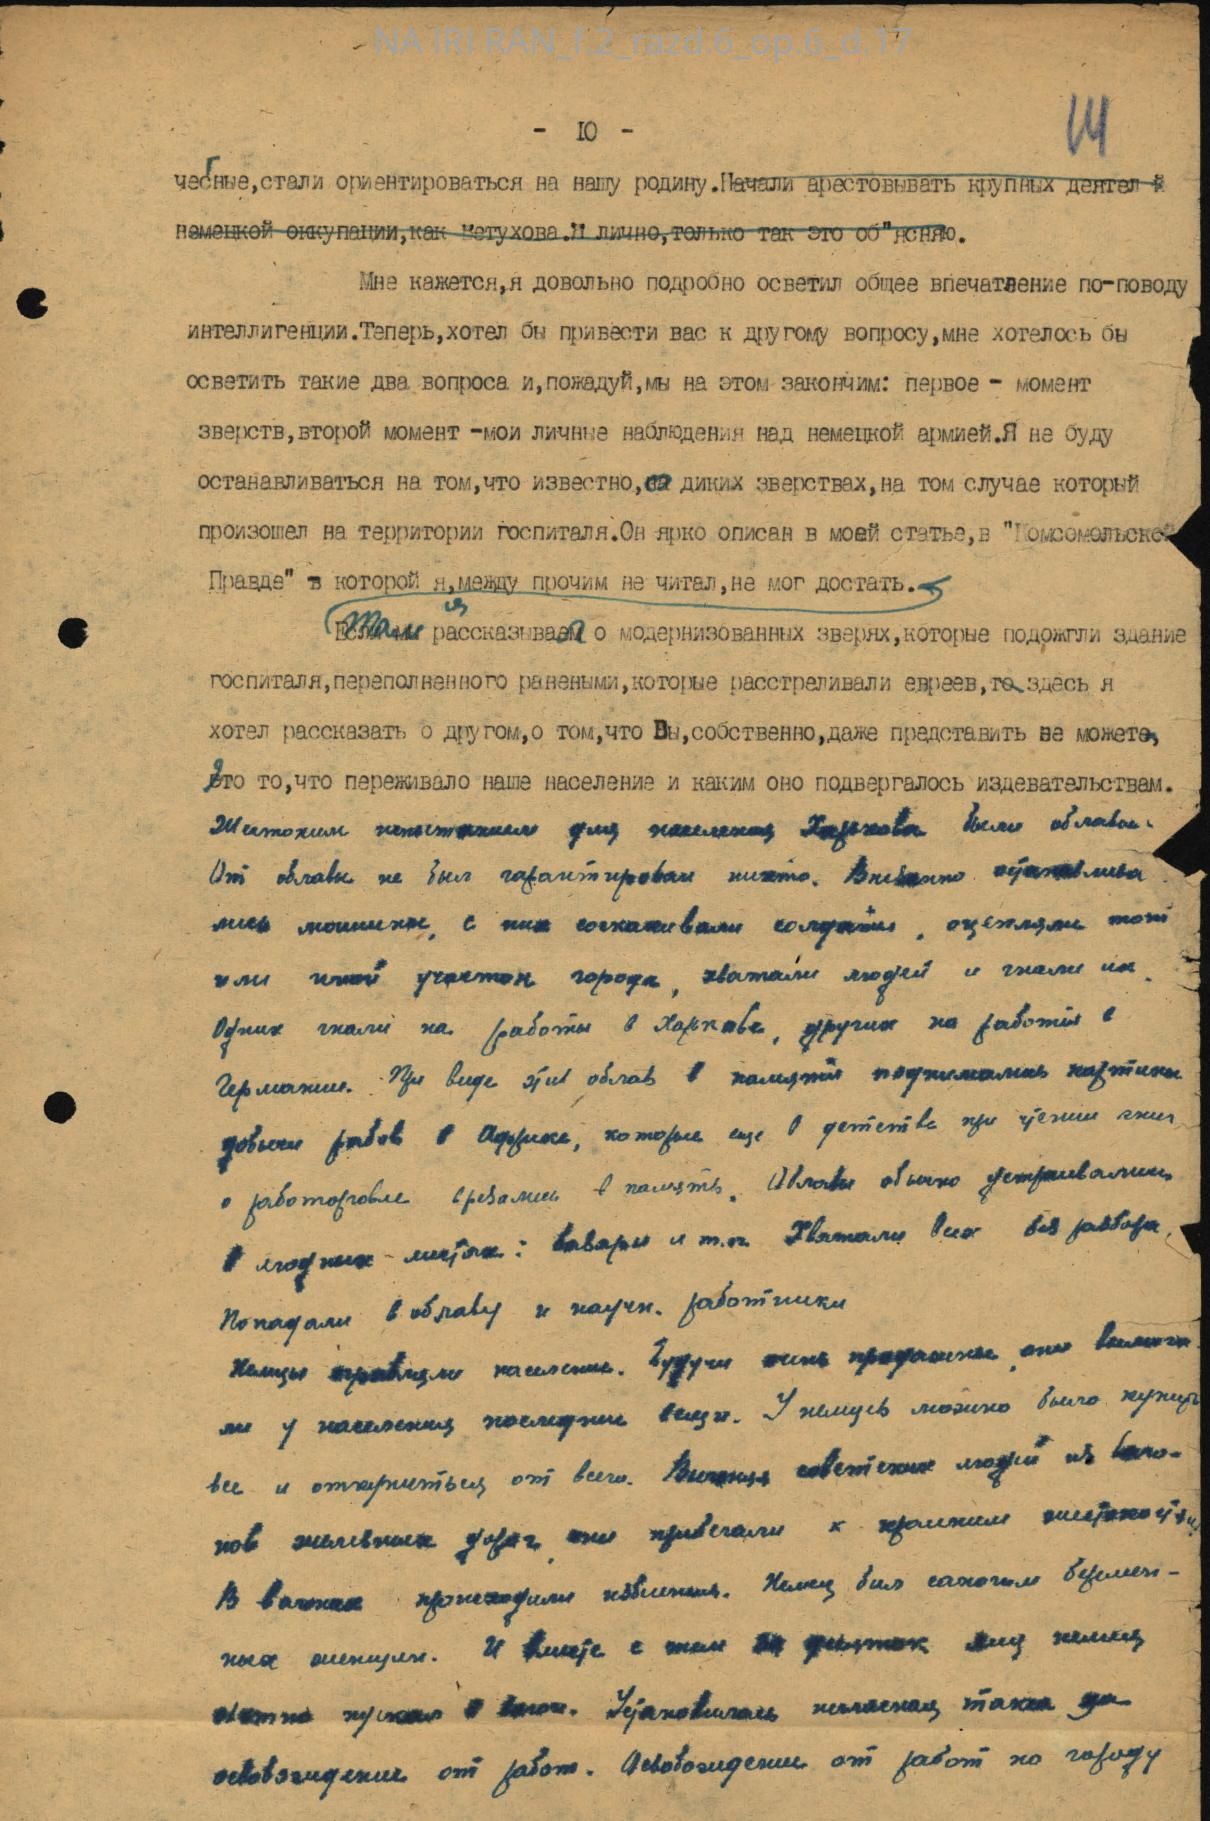 NA IRI RAN_f.2_razd.6_op.6_d.17
- 10 -
14
чебные,стали ориентироваться на нашу родину.Начали арестовывать крупных деятел й
немецкой оккупации,как Петухова.Я лично,только так это об"ясняю.
Мне кажется,я довольно подробно осветил общее впечатление по-поводу
интеллигенции.Теперь,хотел бы привести вас к другому вопросу,мне хотелось бы
осветить такие два вопроса и,пожадуй,мы на этом закончим: первое - момент
зверств,второй момент -мои личные наблюдения над немецкой армией.Я не буду
останавливаться на том,что известно,на диких зверствах,на том случае который
произошел на территории госпиталя.Он ярко описан в моей статье,в "Комсомольской
Правде" в которой я,между прочим не читал,не мог достать.
Там я рассказывал о модернизованных зверях,которые подожгли здание
госпиталя,переполненного ранеными,которые расстреливали евреев,то здесь я
хотел рассказать о другом,о том,что Вы,собственно,даже представить не можете,
это то,что переживало наше население и каким оно подвергалось издевательствам.
Жестоким испытанием для населения Харькова были облавы.
От облавы не был гарантирован никто. Внезапно останавлива
лись машины, с них соскакивали солдаты, оцепляли тот
или иной участок города, хватали людей и гнали их.
Одних гнали на работы в Харькове, других на работы в
Германию. При виде этих облав в памяти поднимались картины
добычи рабов в Африке, которые еще в детстве при чтении книг
о работорговле врезались в память. Облавы обычно устраивались
в людных местах: базары и т.п. Хватали всех без разбора.
Попадали в облаву и научн. работники
Немцы грабили население. Будучи очень продажны, они вымога
ли у населения последние вещи. У немцев можно было купить
все и откупиться от всего. Выгоняя советских людей из ваго-
нов железных дорог, они прибегали к крайним жестокостям.
В вагонах происходили избиения. Немец бил сапогом беремен-
ных женщин. И вместе с тем за десяток яиц немец
охотно пускал в вагон. Установилась негласная такса за
освобождение от работ. Освобождение от работ по городу